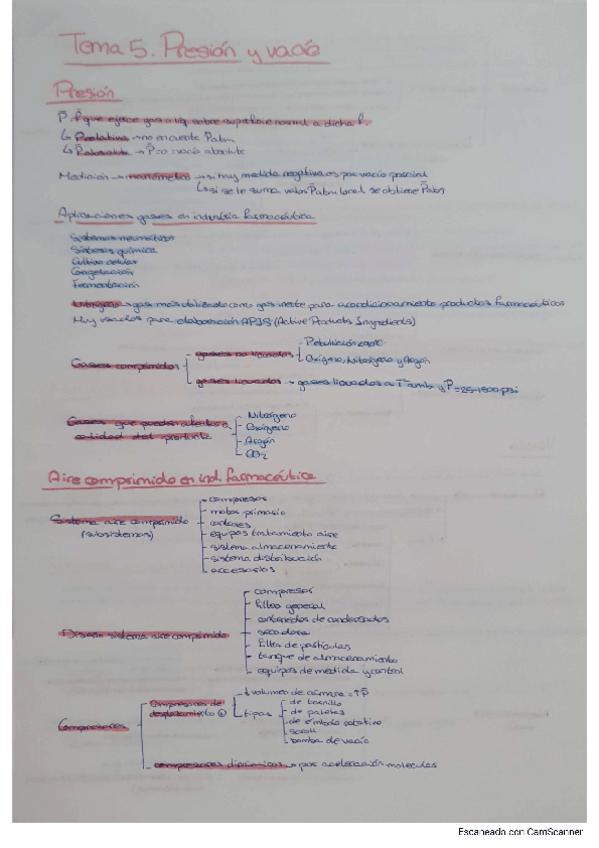 Tema 5. Presión y vacío
Presión
P: P que ejerce gas o líq. sobre superficie normal a dicha F.
↳ Prelativa → no en cuenta Patm
↳ Pabsoluta → P=0 = vacío absoluto
Medición → manómetro → si muy medida negativa es por vacío parcial
↳ si se le suma valor Patm local se obtiene Pabs
Aplicaciones gases en industria farmacéutica
Sistemas neumáticos
Síntesis química
Cultivo celular
Congelación
Fermentación
Nitrógeno → gas más utilizado como gas inerte para acondicionamiento productos farmacéuticos
Muy usados para elaboración APIS (Active Products Ingredients)
Gases comprimidos
gases no licuados
Pebullición
Oxígeno, Nitrógeno y Argón
gases licuados → gases licuados a Tamb y P=25-1500 psi
Gases que pueden afectar a calidad del producto
Nitrógeno
Oxígeno
Argón
CO2
Aire comprimido en ind. farmacéutica
Sistema aire comprimido
(subsistemas)
compresor
motor primario
controles
equipos tratamiento aire
sistema almacenamiento
sistema distribución
accesorios
Diseño sistema aire comprimido
compresor
filtro general
contenedor de condensados
secadora
filtro de partículas
tanque de almacenamiento
equipos de medida y control
Compresores
compresores de desplazamiento ⊕
↓ volumen de cámara = ↑P
tipos
de tornillo
de paletas
de émbolo rotativo
scroll
bomba de vacío
compresores dinámicos → por aceleración molecular
Escaneado con CamScanner